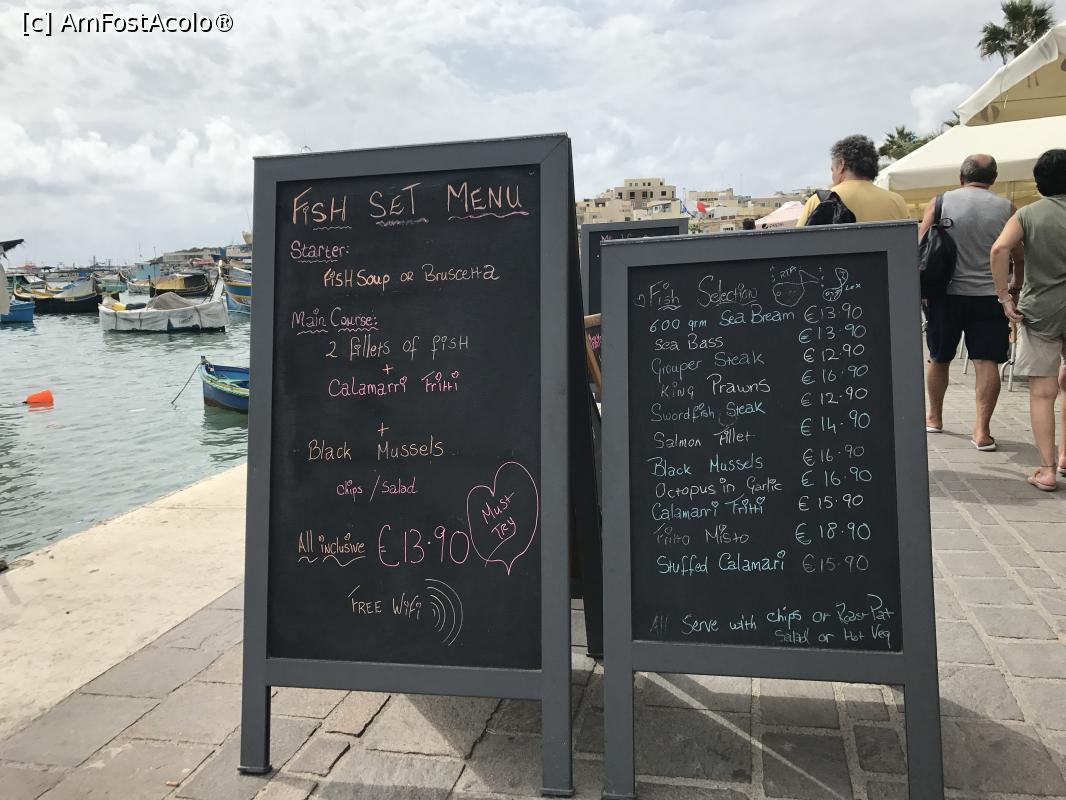 [c] AmFostAcolo®
FiSH SET MENU
Starter:
fiSH Soup OR Bruscetta
Main Course:
2 fillets of fish
+
Calamarri Fritti
+
Black Mussels
chips / Salad
All inclusive €13.90
Must
Try
FREE WiFi
Fish Selection
600 grm Sea Bream €13.90
Sea Bass €13.90
Grouper Steak €12.90
King Prawns €16.90
Swordfish Steak €12.90
Salmon Fillet €14.90
Black Mussels €16.90
Octopus in Garlic €16.90
Calamarri Fritti €15.90
Fritto Misto €18.90
Stuffed Calamari €15.90
All Serve with chips or Roast Pat
Salad or Hot Veg